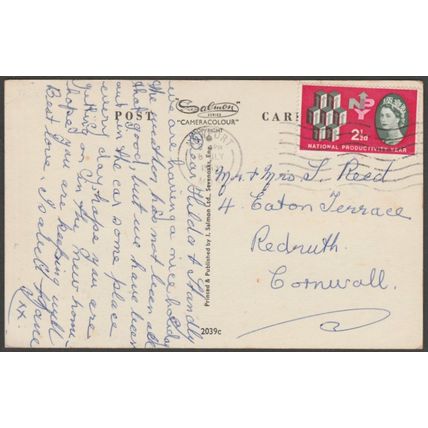 POST
Salmon
SERIES
"CAMERACOLOUR"
COPYRIGHT
CARD
NPY
2½d
NATIONAL PRODUCTIVITY YEAR
Mr & Mrs S. Reed
4. Eaton Terrace
Redruth
Cornwall.
Dear Hilda & Standly
we are having a nice holiday
the weather has not been all
that good, but we have been
out in the car some place
every day, hope you are
getting on in the new home
hope you are keeping well
Best love,
xx
Printed & Published by J. Salmon Ltd., Sevenoaks, Eng.
2039c